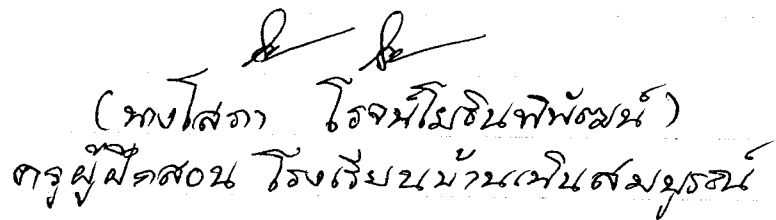 (นางโสภา โรจน์โยธินพิพัฒน์)
ครูผู้ฝึกสอน โรงเรียนบ้านเนินสมบูรณ์